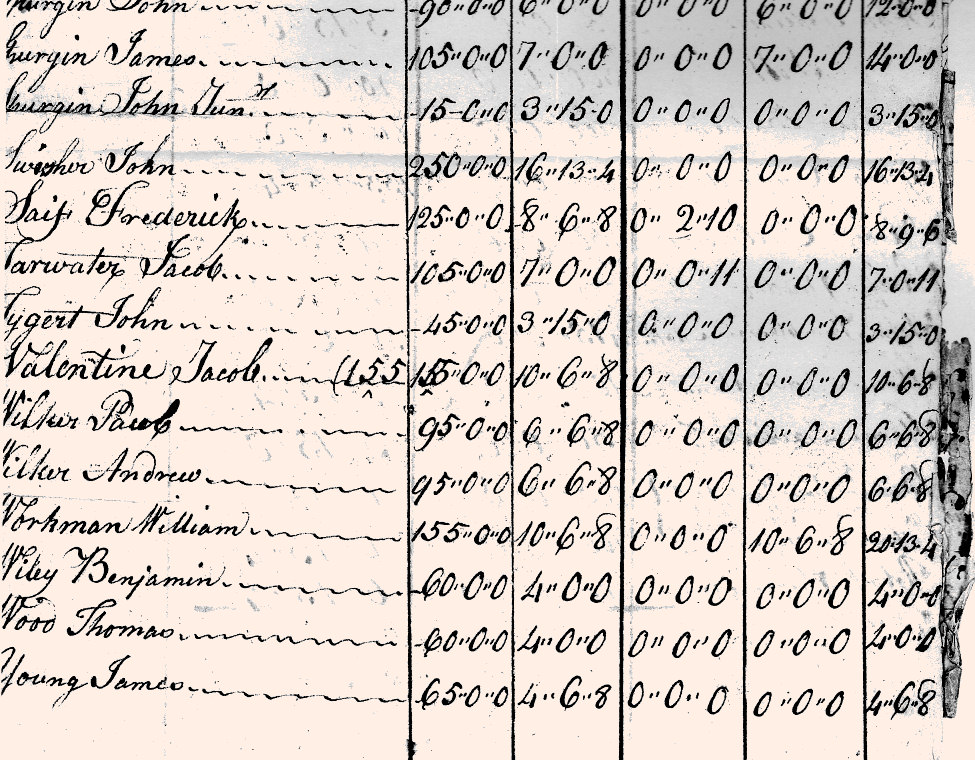 John 90"0"0 6"0"0 0"0"0 6"0"0 12"0"0
James 105"0"0 7"0"0 0"0"0 7"0"0 14"0"0
John Junr 15-0"0 3"15-0 0"0"0 0"0"0 3"15"0
John 250"0"0 16"13"4 0"0"0 0"0"0 16"13"4
Saif Frederick 125"0"0 8"6"8 0"2"10 0"0"0 8"9"6
Tarwater Jacob 105"0"0 7"0"0 0"0"11 0"0"0 7"0"11
Tygert John 45"0"0 3"15"0 0"0"0 0"0"0 3"15"0
Valentine Jacob (155 155"0"0 10"6"8 0"0"0 0"0"0 10"6"8
95"0"0 6"6"8 0"0"0 0"0"0 6"6"8
Andrew 95"0"0 6"6"8 0"0"0 0"0"0 6"6"8
Workman William 155"0"0 10"6"8 0"0"0 10"6"8 20"13"4
Wiley Benjamin 60"0"0 4"0"0 0"0"0 0"0"0 4"0"0
Wood Thomas 60"0"0 4"0"0 0"0"0 0"0"0 4"0"0
Young James 65"0"0 4"6"8 0"0"0 0"0"0 4"6"8